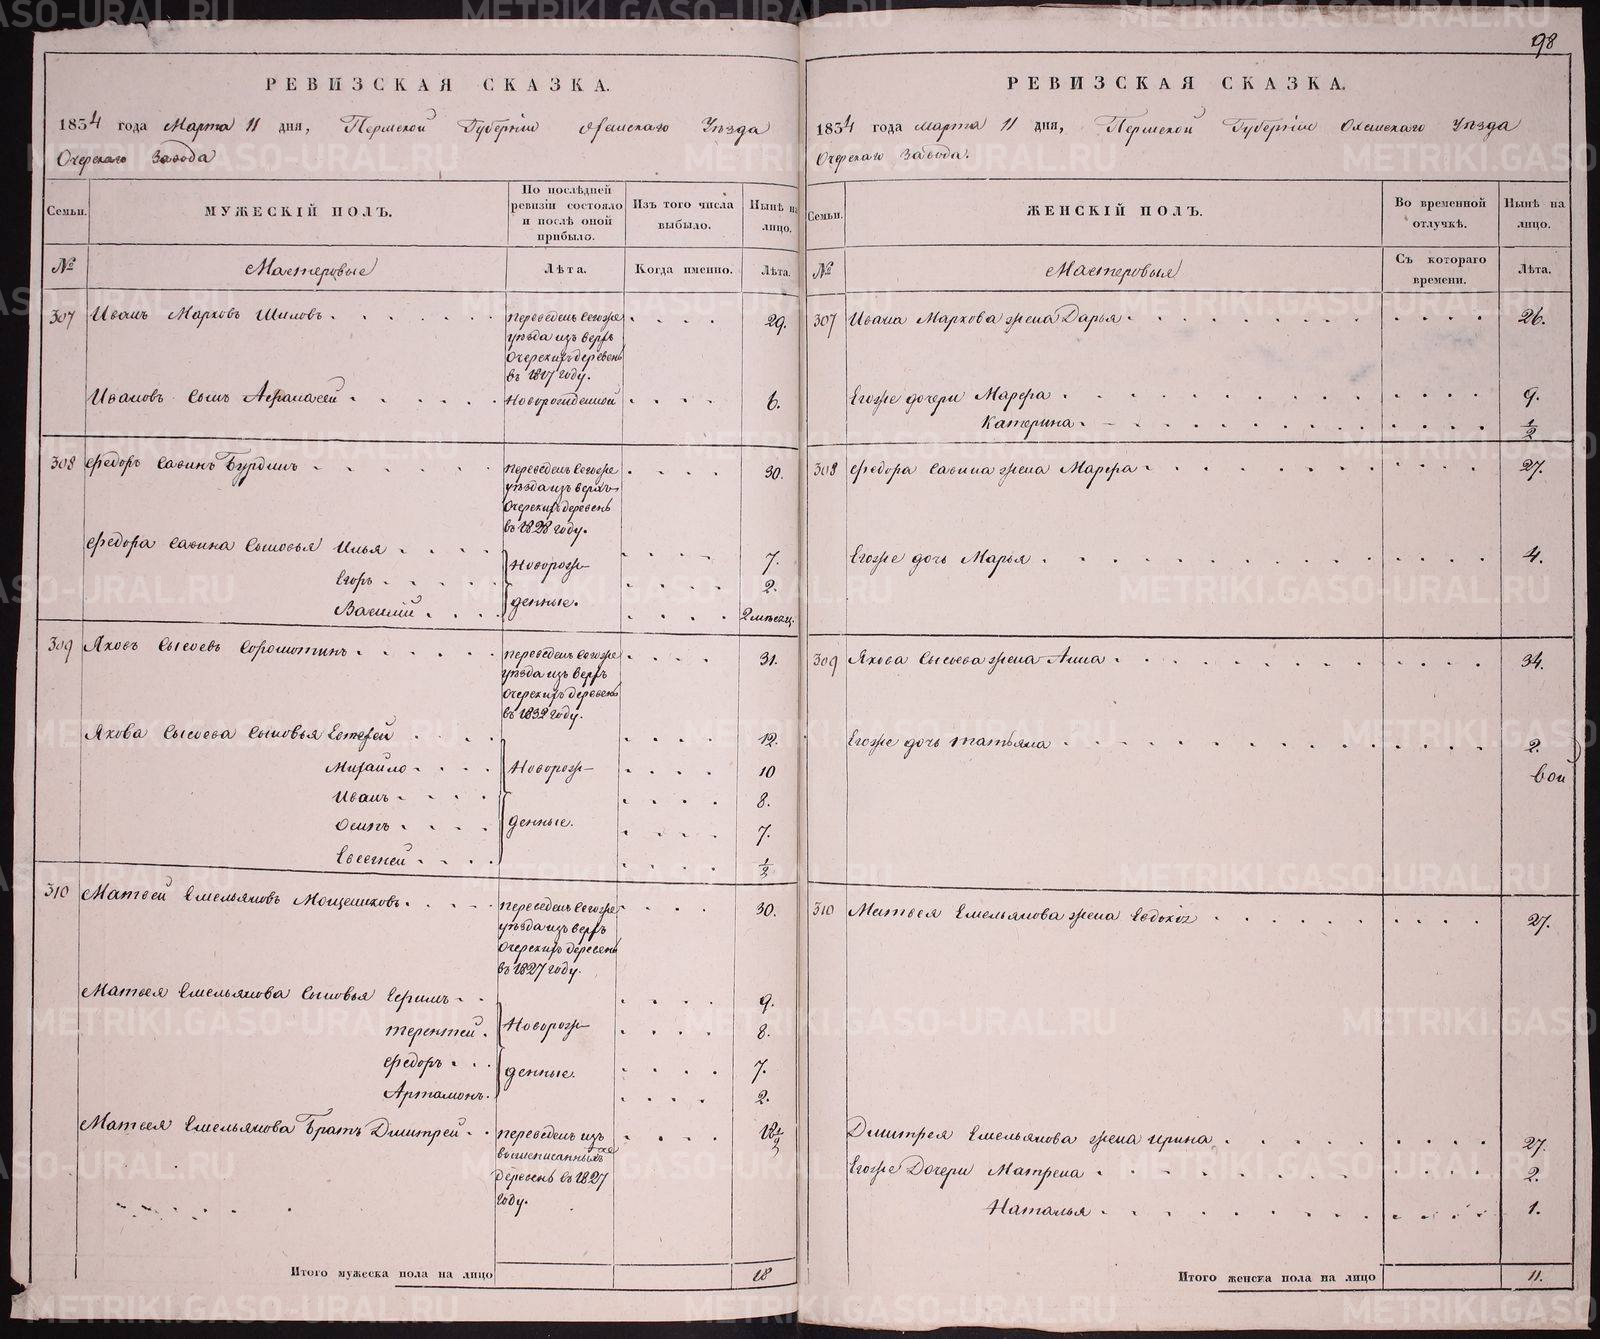 98
РЕВИЗСКАЯ СКАЗКА.
1834 года Марта 11 дня, Пермской Губернiи Оханскаго Уѣзда
Очерскаго Завода
Семьи.
МУЖЕСКIЙ ПОЛЪ.
По послѣдней ревизiи состояло и послѣ оной прибыло.
Изъ того числа выбыло.
Нынѣ на лицо.
№
Мастеровые
Лѣта.
Когда именно.
Лѣта.
307 Иванъ Марковъ Шиловъ. переведенъ сегоже 29.
уѣзда изъ верхъ
Очерскихъ деревень
въ 1817 году.
Ивановъ сынъ Афанасей новорожденной 6.
308 Федоръ Савинъ Бурдинъ переведенъ сегоже 30.
уѣзда изъ верхъ
Очерскихъ деревень
въ 1828 году.
Федора Савина Сыновья Илья новорож- 7.
Егоръ 2.
Василiй денные. 2 мѣсяц.
309 Яковъ Сысоевъ переведенъ сегоже 31.
уѣзда изъ верхъ
Очерскихъ деревень
въ 1832 году.
Якова Сысоева Сыновья Естефей 12.
Михайло Новорож- 10
Иванъ 8.
Осипъ денные. 7.
Евсегней 1/2
310 Матвей Емельяновъ Мощениковъ. переведенъ сегоже 30.
уѣзда изъ верхъ
Очерскихъ деревень
въ 1827 году.
Матвея Емельянова Сыновья Ефимъ 9.
терентей Новорож- 8.
Федоръ 7.
Артамонъ денные. 2.
Матвея Емельянова Братъ Дмитрей переведенъ изъ
вышеписанныхъ
деревень въ 1827
году.
Итого мужеска пола на лицо 18
РЕВИЗСКАЯ СКАЗКА.
1834 года марта 11 дня, Пермской Губернiи Оханскаго Уѣзда
Очерскаго Завода.
Семьи.
ЖЕНСКIЙ ПОЛЪ.
Во временной отлучкѣ.
Нынѣ на лицо.
№
Мастеровыя
Съ котораго времени.
Лѣта.
307 Ивана Маркова жена Дарья 26.
Егоже дочери Марфа 9.
Катерина 1/2
308 Федора Савина жена Марфа 27.
Егоже дочь Марья 4.
309 Якова Сысоева жена Анна 34.
Егоже дочь татьяна 2.
310 Матвея Емельянова жена Евдокiя 27.
Дмитрея Емельянова жена ирина 27.
Егоже Дочери Матрена 2.
Наталья 1.
Итого женска пола на лицо 11.
METRIKI.GASO-URAL.RU